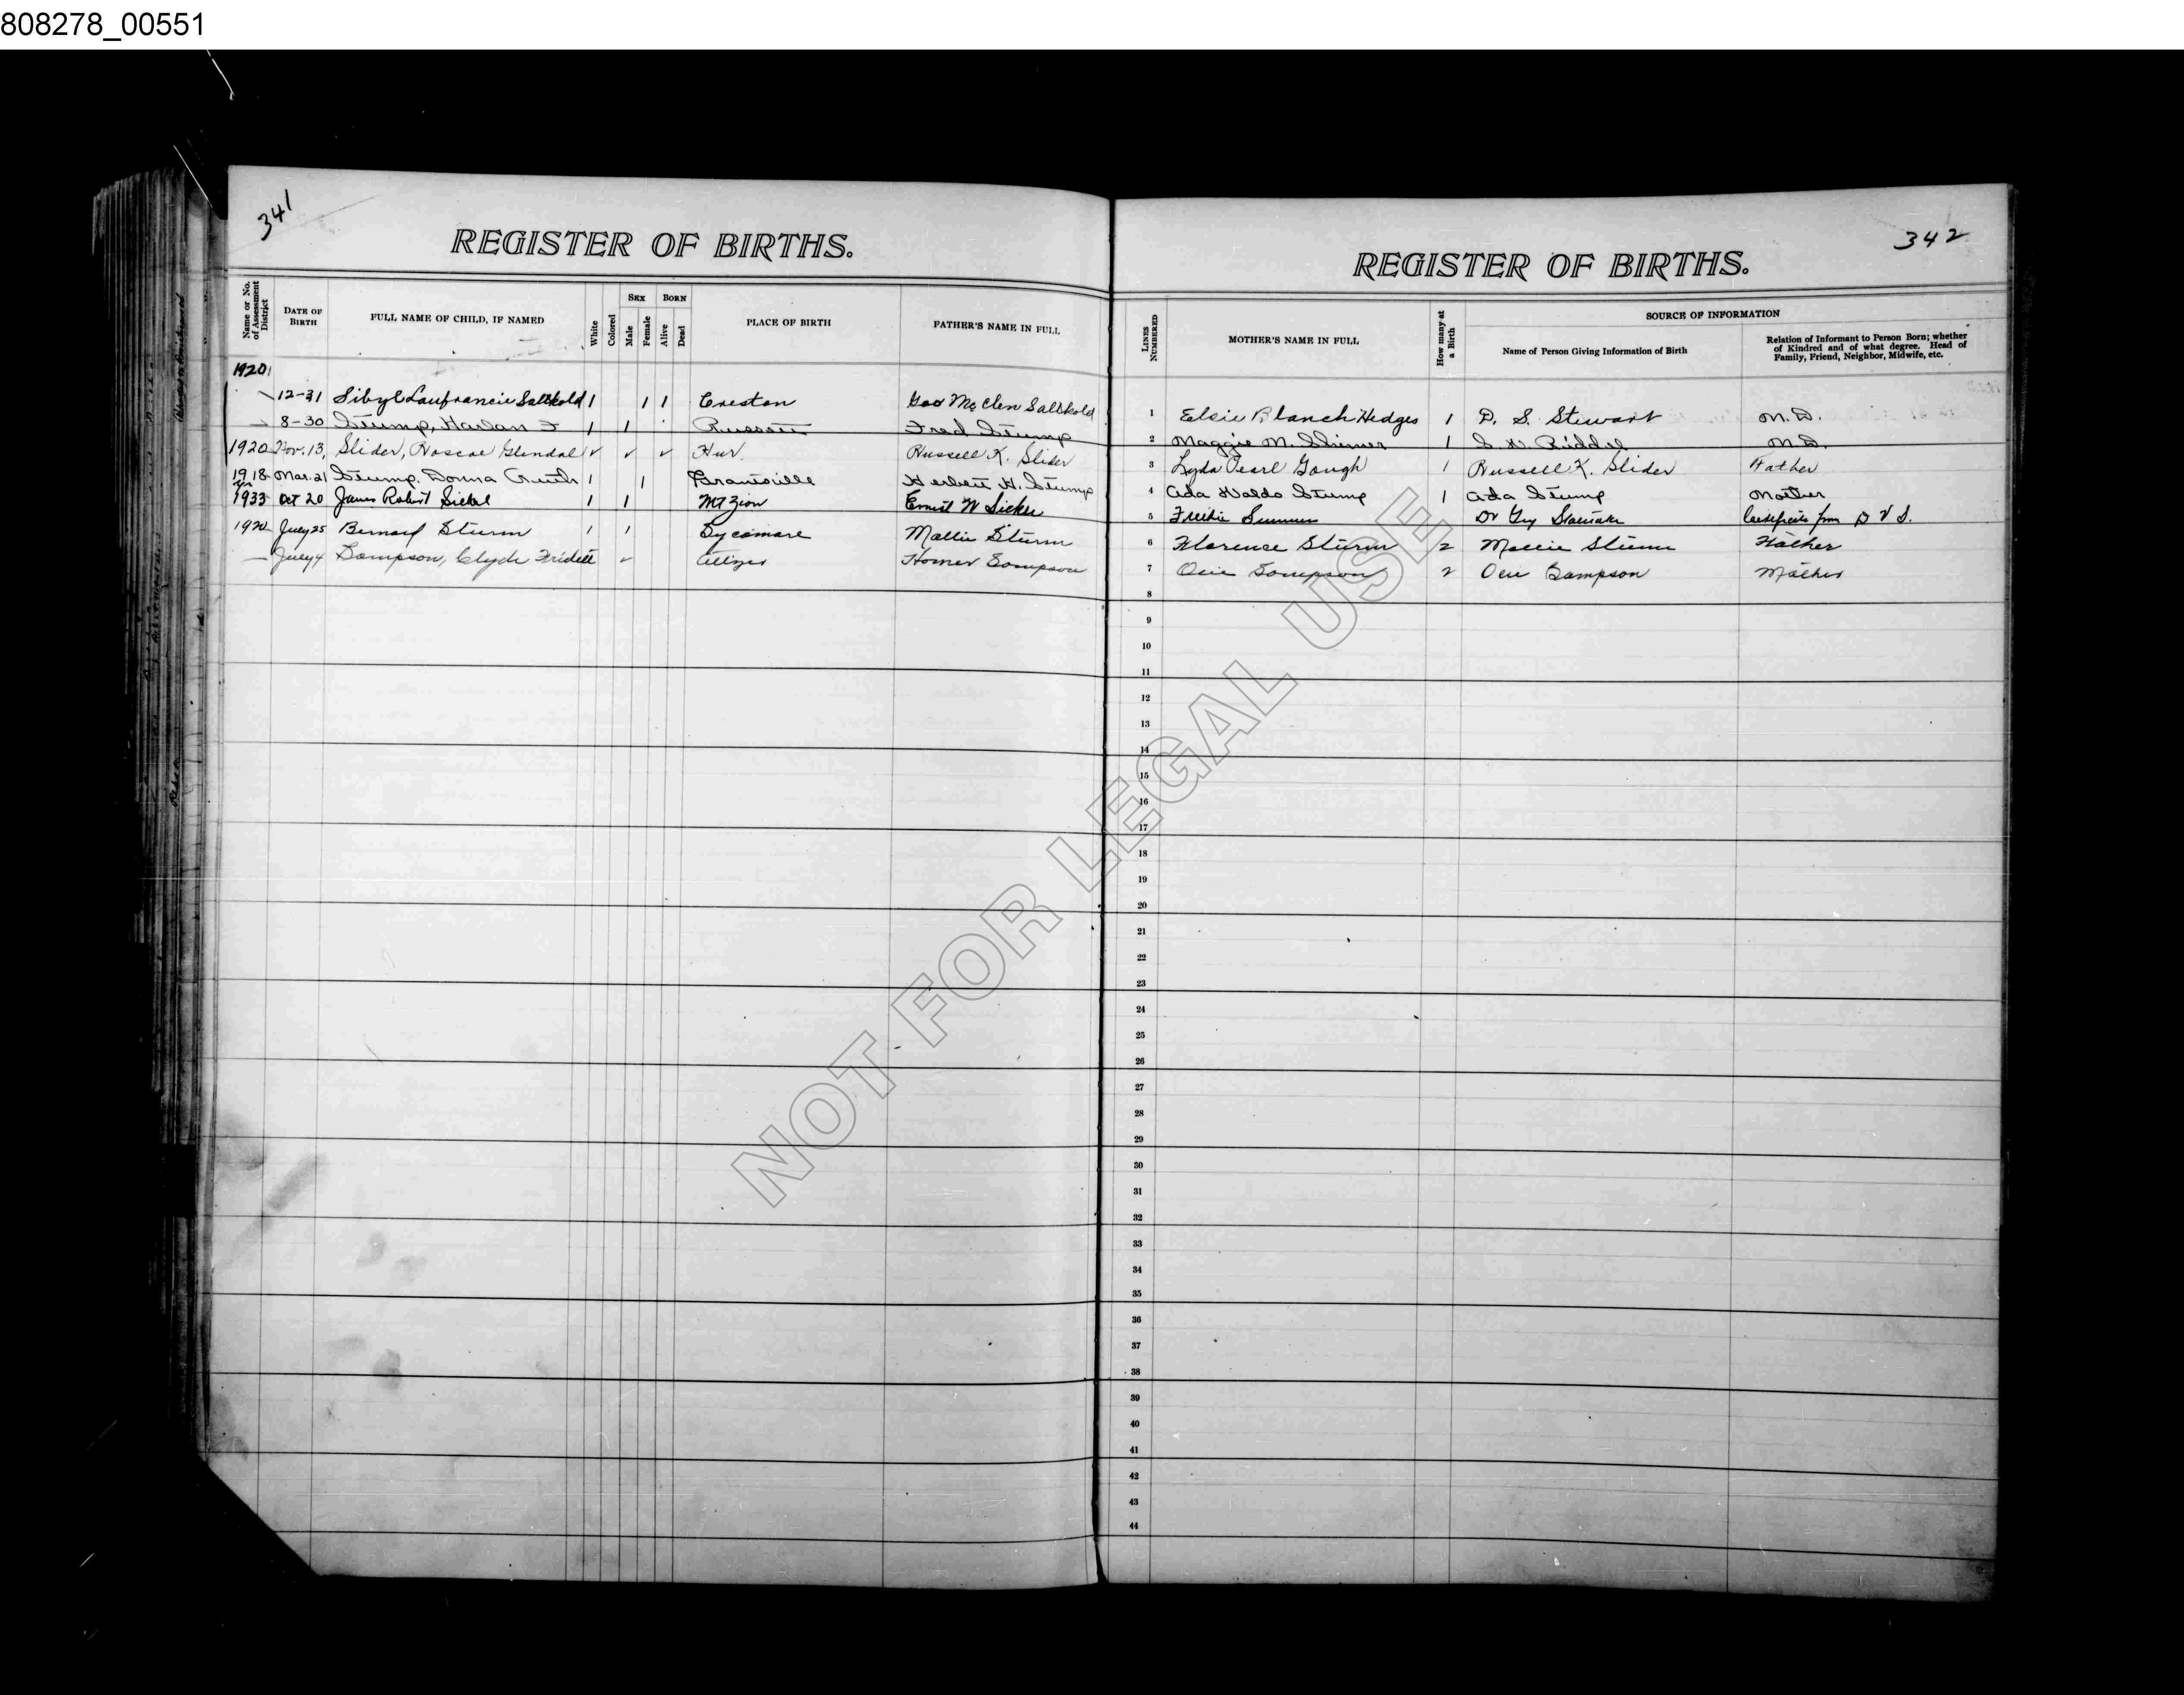 808278_00551
341
REGISTER OF BIRTHS.
Name or No. of Assessment District
DATE OF BIRTH
FULL NAME OF CHILD, IF NAMED
White
Colored
SEX
Male
Female
BORN
Alive
Dead
PLACE OF BIRTH
FATHER'S NAME IN FULL
1920
12-31 Sibyl 1 1 1 Creston Geo Mc Clen
8-30 Stump, Harlan F 1 1 Russett Fred Stump
1920 Nov. 13, Slider, Roscoe Glendal ✓ ✓ ✓ Hur. Russell K. Slider
1918 Mar. 21 Stump, Donna Ruth 1 1 Grantsville Herbert H. Stump
1933 Oct 20 James Robert Sickel 1 1 Mt Zion Ernest W
1920 July 25 Bernard Sturm 1 1 Sycamore Mollie Sturm
July 4 Clyde ✓ Homer
342
REGISTER OF BIRTHS.
LINES NUMBERED
MOTHER'S NAME IN FULL
How many at a Birth
SOURCE OF INFORMATION
Name of Person Giving Information of Birth
Relation of Informant to Person Born; whether of Kindred and of what degree. Head of Family, Friend, Neighbor, Midwife, etc.
1 Elsie Blanch Hedges 1 D. S. Stewart M.D.
2 Maggie M. 1 M.D.
3 Lyda Pearl Gough 1 Russell K. Slider Father
4 Ada Waldo Stump 1 Ada Stump Mother
5 Dr Guy Certificate from D V S.
6 Florence Sturm 2 Mollie Sturm Father
7 2 Mother
8
9
10
11
12
13
14
15
16
17
18
19
20
21
22
23
24
25
26
27
28
29
30
31
32
33
34
35
36
37
38
39
40
41
42
43
44
NOT FOR LEGAL USE